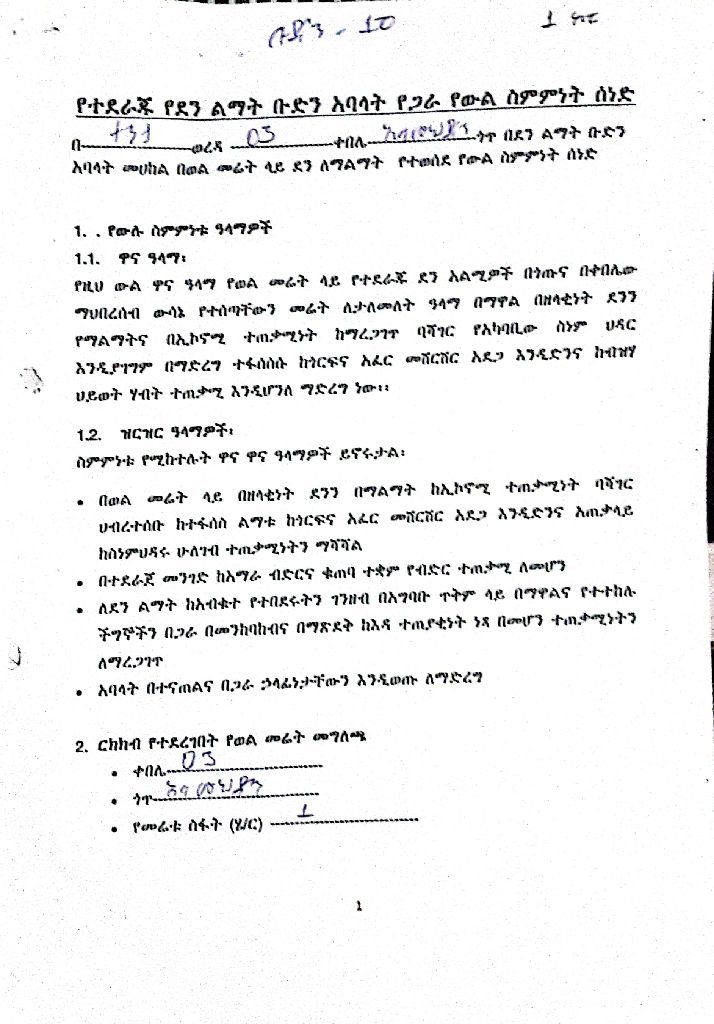 ቡድን - 10
1
የተደራጁ የደን ልማት ቡድን አባላት የጋራ የውል ስምምነት ሰነድ
በ----------ወረዳ 03 ----------ቀበሌ----------ጎጥ በደን ልማት ቡድን
አባላት መሀከል በወል መሬት ላይ ደን ለማልማት የተወሰደ የውል ስምምነት ሰነድ
1. . የውሉ ስምምነቱ ዓላማዎች
1.1. ዋና ዓላማ፡
የዚህ ውል ዋና ዓላማ የወል መሬት ላይ የተደራጁ ደን አልሚዎች በጎጡና በቀበሌው
ማህበረሰብ ውሳኔ የተሰጣቸውን መሬት ለታለመለት ዓላማ በማዋል በዘላቂነት ደንን
የማልማትና በኢኮኖሚ ተጠቃሚነት ከማረጋገጥ ባሻገር የአካባቢው ስነም ህዳር
እንዲያገግም በማድረግ ተፋሰሰሱ ከጎርፍና አፈር መሸርሸር አደጋ እንዲድንና ከብዝሃ
ህይወት ሃብት ተጠቃሚ እንዲሆንለ ማድረግ ነው፡፡
1.2. ዝርዝር ዓላማዎች፡
ስምምነቱ የሚከተሉት ዋና ዋና ዓላማዎች ይኖሩታል፡
• በወል መሬት ላይ በዘላቂነት ደንን በማልማት ከኢኮኖሚ ተጠቃሚነት ባሻገር
ህብረተሰቡ ከተፋሰስ ልማቱ ከጎርፍና አፈር መሸርሸር አደጋ እንዲድንና አጠቃላይ
ከስነምህዳሩ ሁለገብ ተጠቃሚነትን ማሻሻል
• በተደራጀ መንገድ ከአማራ ብድርና ቁጠባ ተቋም የብድር ተጠቃሚ ለመሆን
• ለደን ልማት ከአብቁተ የተበደሩትን ገንዘብ በአግባቡ ጥቅም ላይ በማዋልና የተተከሉ
ችግኞችን በጋራ በመንከባከብና በማጽደቅ ከእዳ ተጠያቂነት ነጻ በመሆን ተጠቃሚነትን
ለማረጋገጥ
• አባላት በተናጠልና በጋራ ኃላፊነታቸውን እንዲወጡ ለማድረግ
2. ርክክብ የተደረገበት የወል መሬት መግለጫ
• ቀበሌ 03
• ጎጥ
• የመሬቱ ስፋት (ሄ/ር) 1
1